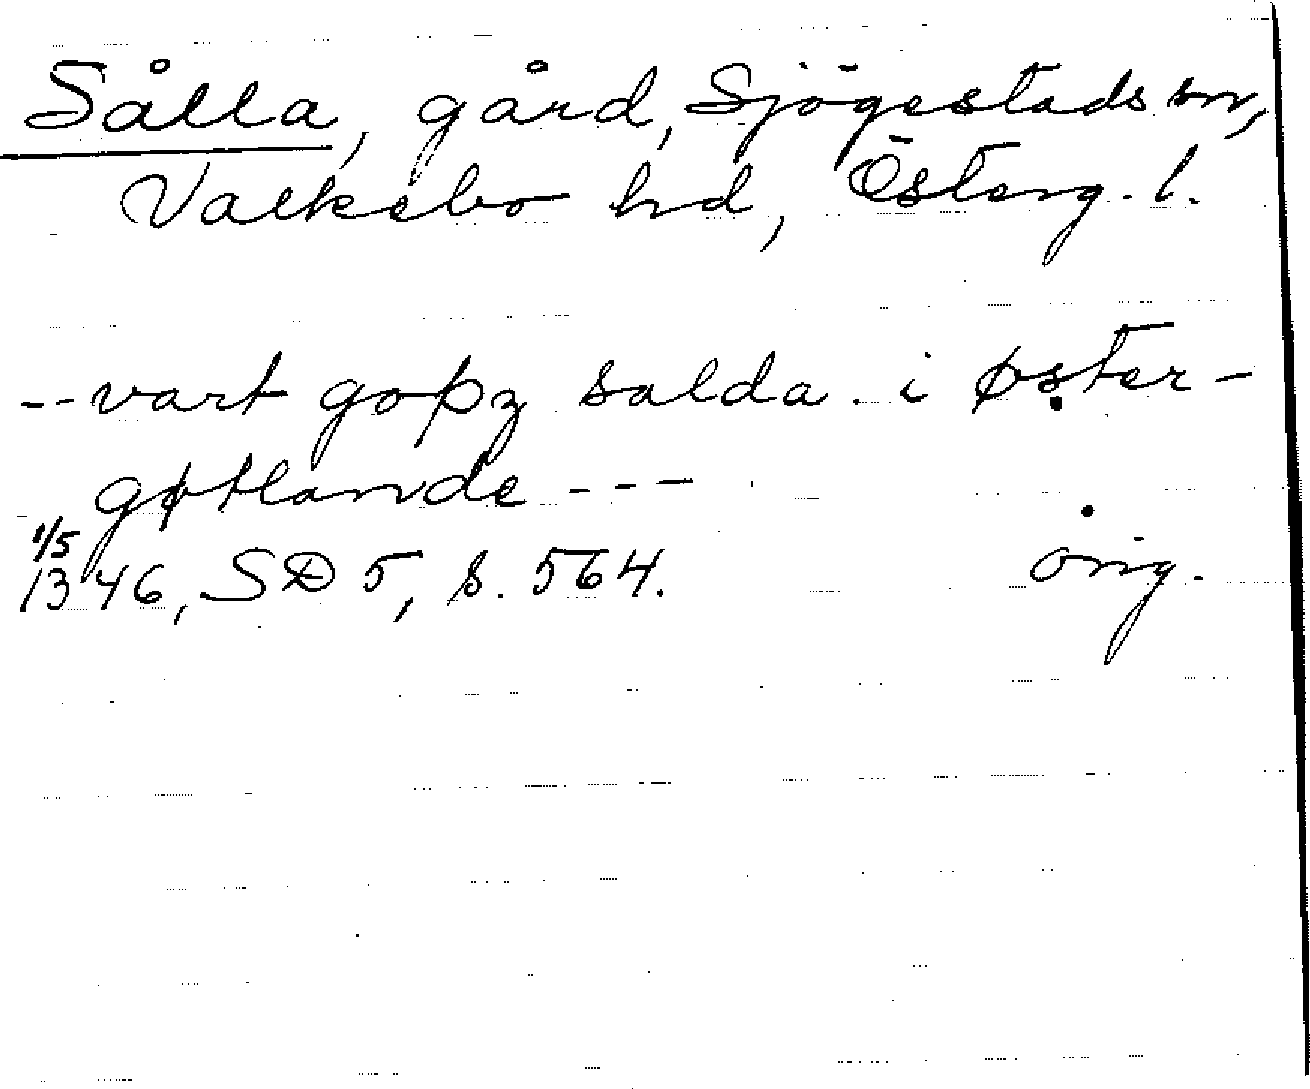 Sålla, gård, Sjögestads sn,
Valkebo hd, Österg. l.
-- vart goþz salda i øster-
gøtlande ---
1/5
1346, SD 5, s. 564. orig.